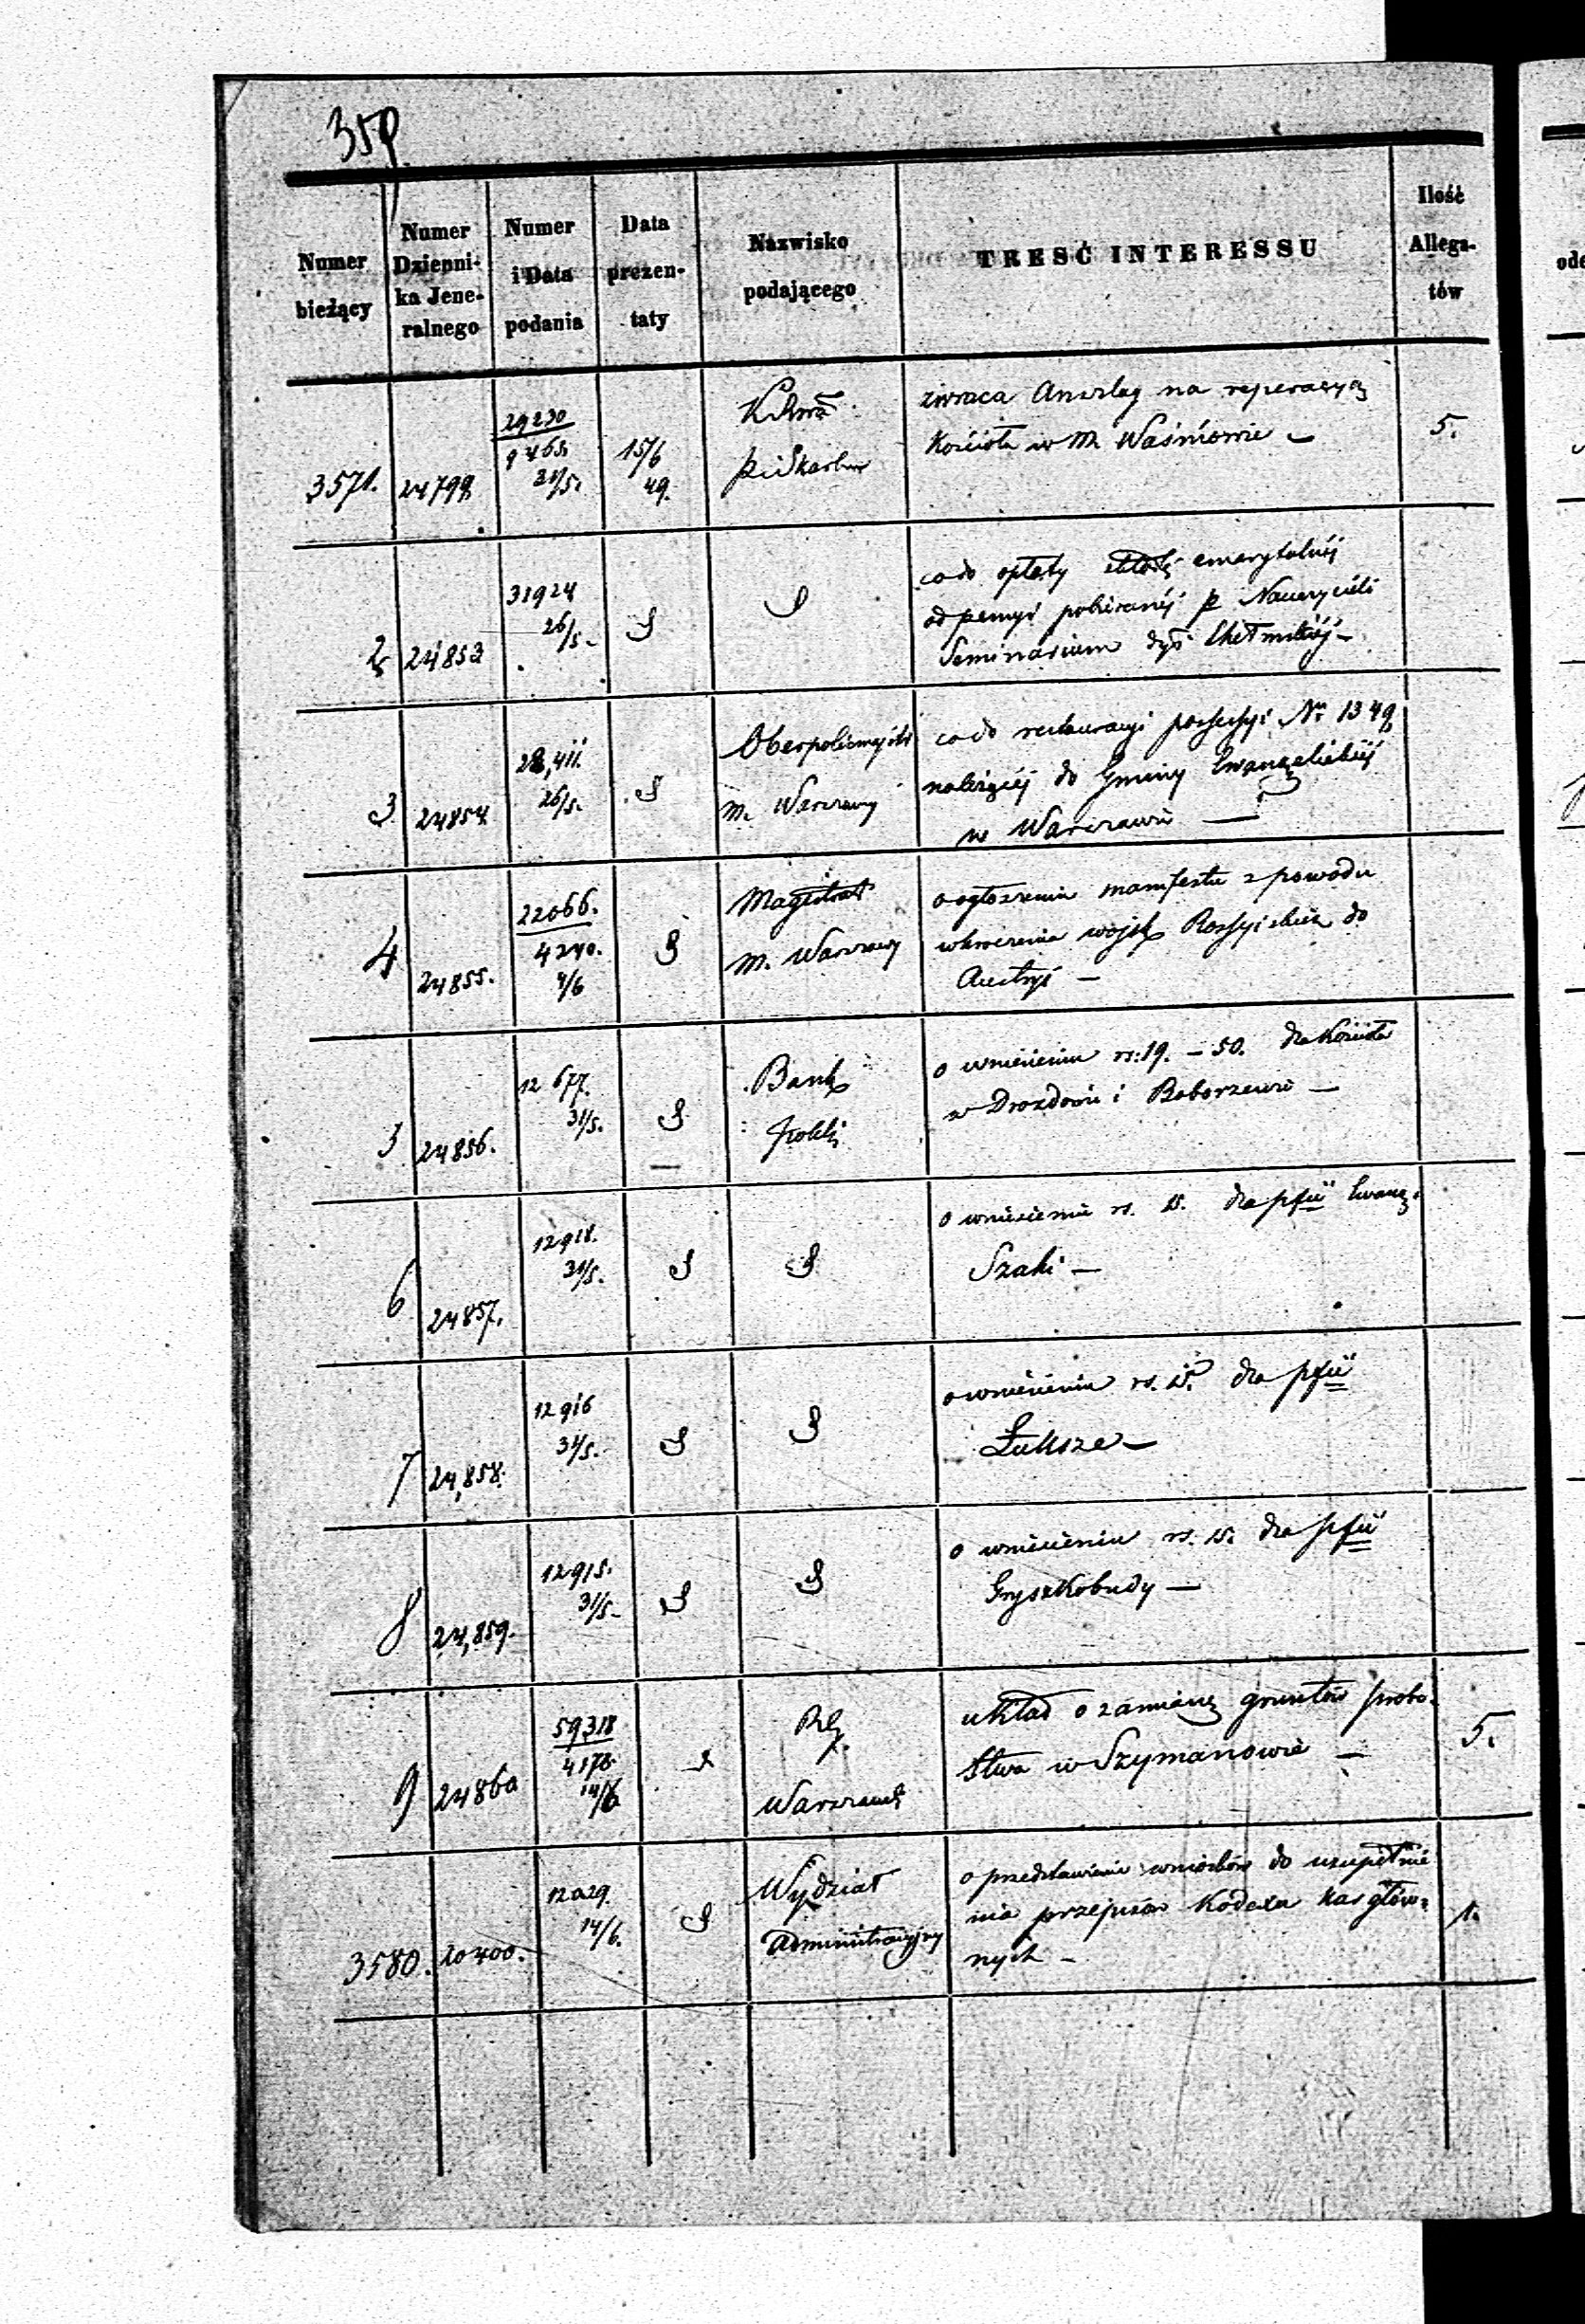 359
Numer bieżący
Numer Dzienni-ka Jene-ralnego
Numer i Data podania
Data prezen-taty
Nazwisko podającego
TRESĆ INTERESSU
Ilość Allega-tów
3571. 24799. 29230 9465. 31/5. 15/6 49. 5.
zwraca Anszlag na reperacyą
Kościoła w M. Waśniowie —
2 24853 31924 26/5 -
co do opłaty emerytalnéj
od pensyi pobieranéj p. Nauczycieli
Seminarium
3 24854. 28,411. 26/5. Oberpolicmajster
m. Warszawy
co do restauracyi possessyi Nr. 1349
należącéj do Gminy Ewangelickiéj
w Warszawie —
4 24855. 22066. 4240. 4/6 Magistrat
m. Warszawy
o ogłoszeniu manifestu z powodu
wkroczenia wojsk Rossyiskich do
Austryi —
5 24856. 12677. 31/5. Bank
Polski
o wniesieniu rs. 19. - 50. dla Kościoła
w Drozdowie i Boborzewie —
6 24857. 12918. 31/5.
o wniesieniu rs. 15. dla pfii Ewang.
Szaki —
7 24,858. 12916 31/5.
o wniesieniu rs. 15. dla pfii
Łuksze —
8 24,859. 12915. 31/5 -
o wniesieniu rs. 15. dla pfii
Gryszkobudy —
9 24860 59318 4176. 14/6 Warszawski 5.
układ o zamianę gruntów probo-
stwa w Szymanowie —
3580. 20400. 12029. 14/6. Wydział
Administracyjny 1.
o przedstawienie wniosków do uzupełnie
nia przepisów Kodexa kar głów-
nych —